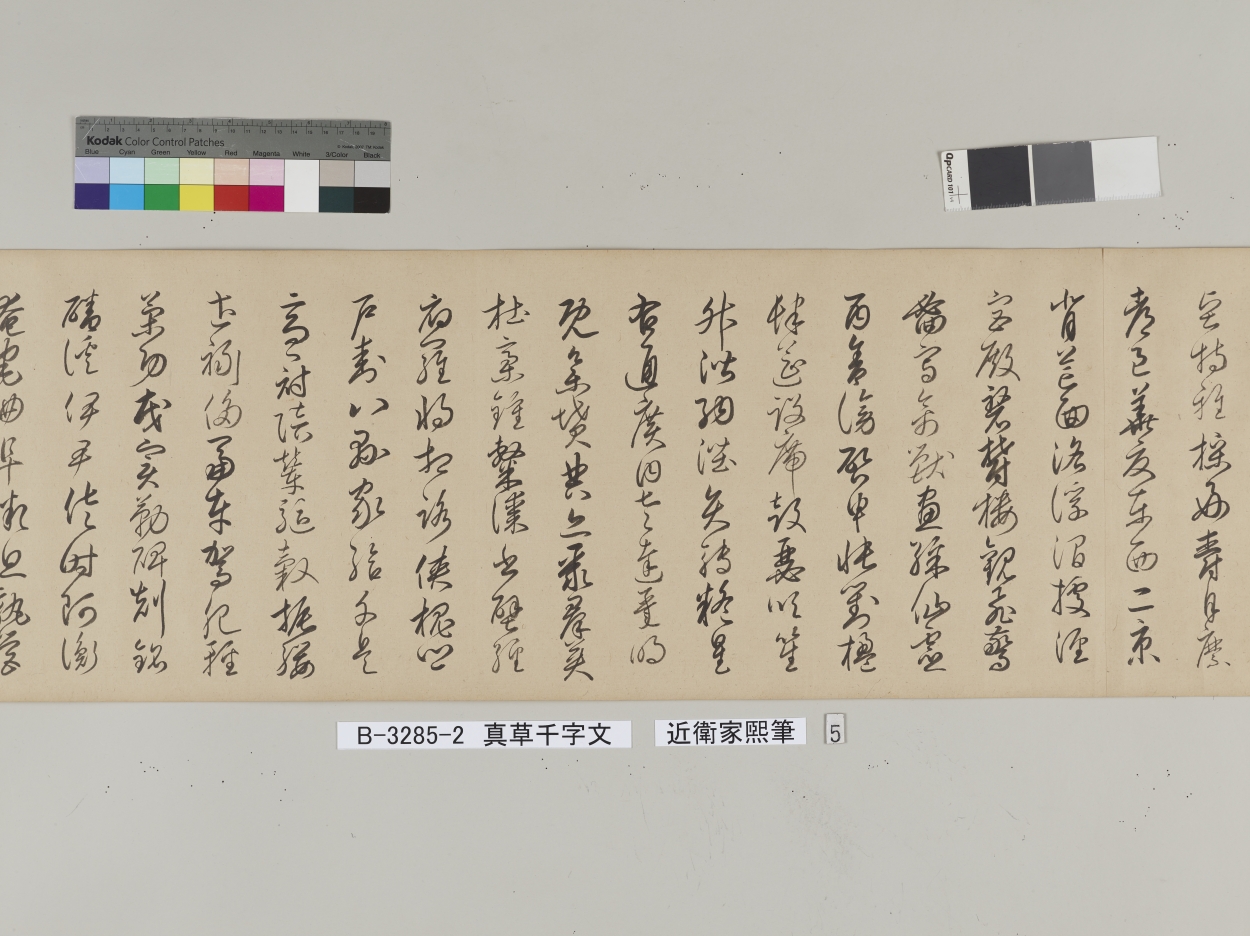 Kodak Color Control Patches
Blue Cyan Green Yellow Red Magenta White 3/Color Black
QPCARD 101
堅持雅操好爵自縻
都邑華夏東西二京
背芒面洛浮渭據涇
宮殿磐鬱樓觀飛驚
圖寫禽獸畫綵仙靈
丙舍傍啓甲帳對楹
肆筵設席鼓瑟吹笙
升階納陛弁轉疑星
右通廣內左達承明
既集墳典亦聚群英
杜稾鍾隸漆書壁經
府羅將相路俠槐卿
戶封八縣家給千兵
高冠陪輦驅轂振纓
世祿侈富車駕肥輕
策功茂實勒碑刻銘
磻溪伊尹佐時阿衡
奄宅曲阜微旦孰營
B-3285-2 真草千字文
近衛家熙筆
5